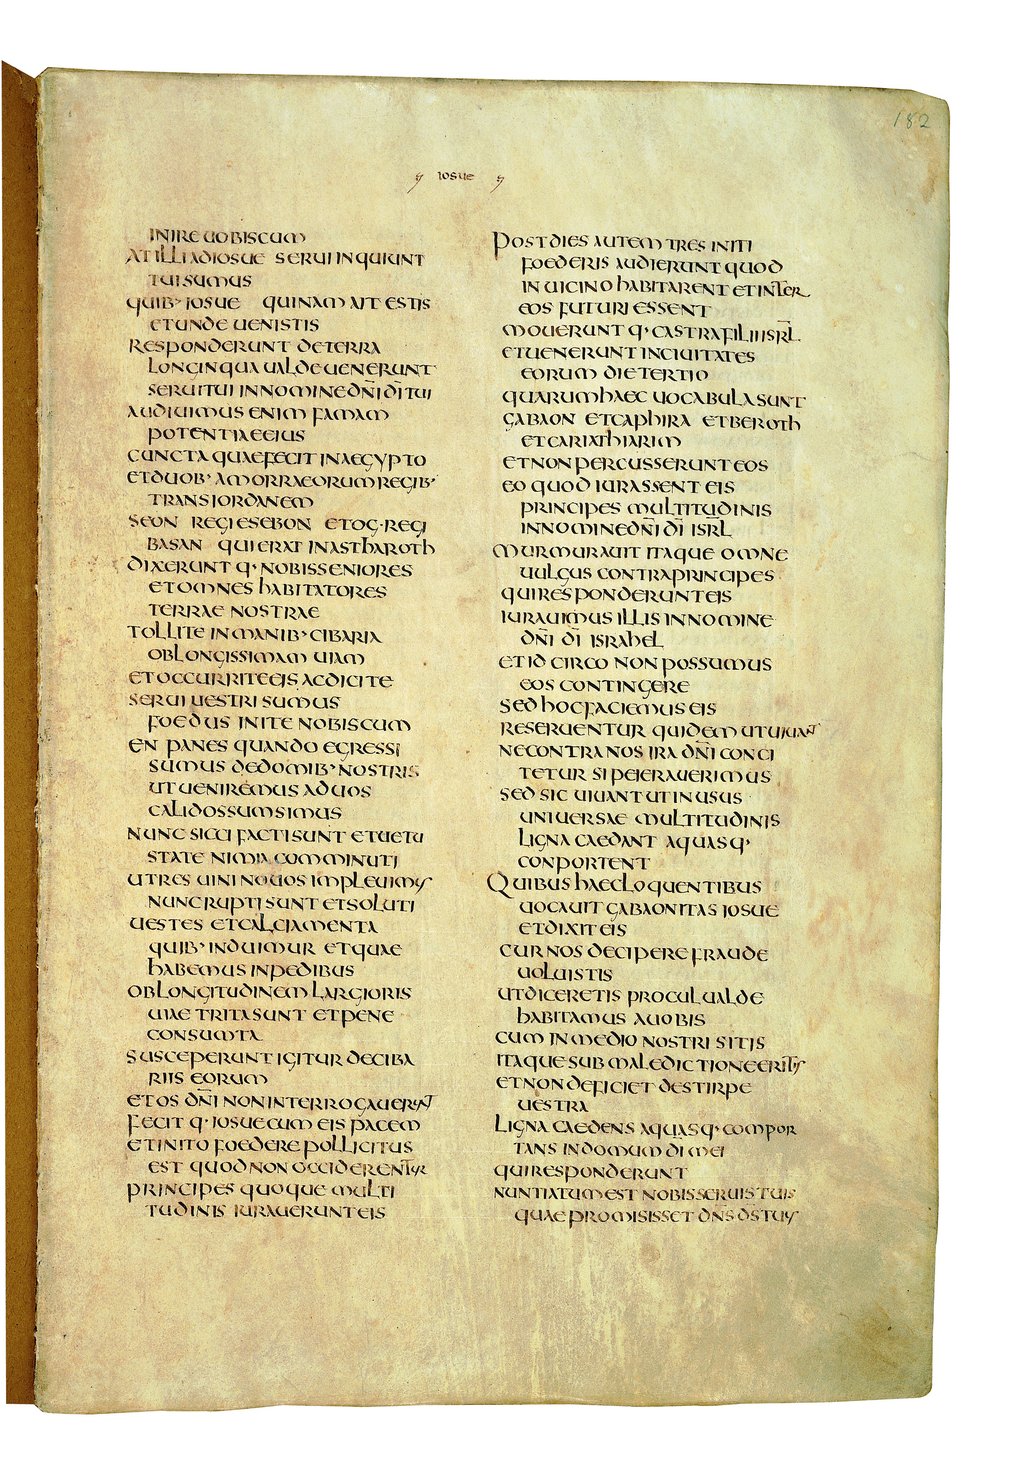 182
IOSUE
INIRE UOBISCUM
AT ILLI AD IOSUE SERUI INQUIUNT
TUI SUMUS
QUIB· IOSUE QUINAM AIT ESTIS
ET UNDE UENISTIS
RESPONDERUNT DE TERRA
LONGINQUA UALDE UENERUNT
SERUI TUI IN NOMINE DN̄I DĪ TUI
AUDIUIMUS ENIM FAMAM
POTENTIAE EIUS
CUNCTA QUAE FECIT IN AEGYPTO
ET DUOB· AMORRAEORUM REGIB·
TRANS IORDANEM
SEON REGI ESEBON ET OG· REGI
BASAN QUI ERAT IN ASTHAROTH
DIXERUNT Q· NOBIS SENIORES
ET OMNES HABITATORES
TERRAE NOSTRAE
TOLLITE IN MANIB· CIBARIA
OB LONGISSIMAM UIAM
ET OCCURRITE EIS AC DICITE
SERUI UESTRI SUMUS
FOEDUS INITE NOBISCUM
EN PANES QUANDO EGRESSI
SUMUS DE DOMIB· NOSTRIS
UT UENIREMUS AD UOS
CALIDOS SUMSIMUS
NUNC SICCI FACTI SUNT ET UETU
STATE NIMIA COMMINUTI
UTRES UINI NOUOS IMPLEUIMUS
NUNC RUPTI SUNT ET SOLUTI
UESTES ET CALCIAMENTA
QUIB· INDUIMUR ET QUAE
HABEMUS IN PEDIBUS
OB LONGITUDINEM LARGIORIS
UIAE TRITA SUNT ET PENE
CONSUMTA
SUSCEPERUNT IGITUR DE CIBA
RIIS EORUM
ET OS DN̄I NON INTERROGAUERUNT
FECIT Q· IOSUE CUM EIS PACEM
ET INITO FOEDERE POLLICITUS
EST QUOD NON OCCIDERENTUR
PRINCIPES QUOQUE MULTI
TUDINIS IURAUERUNT EIS
POST DIES AUTEM TRES INITI
FOEDERIS AUDIERUNT QUOD
IN UICINO HABITARENT ET INTER
EOS FUTURI ESSENT
MOUERUNT Q· CASTRA FILII ISRL̄
ET UENERUNT IN CIUITATES
EORUM DIE TERTIO
QUARUM HAEC UOCABULA SUNT
GABAON ET CAPHIRA ET BEROTH
ET CARIATHIARIM
ET NON PERCUSSERUNT EOS
EO QUOD IURASSENT EIS
PRINCIPES MULTITUDINIS
IN NOMINE DN̄I DĪ ISRL̄
MURMURAUIT ITAQUE OMNE
UULGUS CONTRA PRINCIPES
QUI RESPONDERUNT EIS
IURAUIMUS ILLIS IN NOMINE
DN̄I DĪ ISRAHEL
ET IDCIRCO NON POSSUMUS
EOS CONTINGERE
SED HOC FACIEMUS EIS
RESERUENTUR QUIDEM UT UIUANT
NE CONTRA NOS IRA DN̄I CONCI
TETUR SI PEIERAUERIMUS
SED SIC UIUANT UT IN USUS
UNIUERSAE MULTITUDINIS
LIGNA CAEDANT AQUASQ·
CONPORTENT
QUIBUS HAEC LOQUENTIBUS
UOCAUIT GABAONITAS IOSUE
ET DIXIT EIS
CUR NOS DECIPERE FRAUDE
UOLUISTIS
UT DICERETIS PROCUL UALDE
HABITAMUS A UOBIS
CUM IN MEDIO NOSTRI SITIS
ITAQUE SUB MALEDICTIONE ERITIS
ET NON DEFICIET DE STIRPE
UESTRA
LIGNA CAEDENS AQUASQ· COMPOR
TANS IN DOMUM DĪ MEI
QUI RESPONDERUNT
NUNTIATUM EST NOBIS SERUIS TUIS
QUAE PROMISISSET DN̄S D̄S TUUS